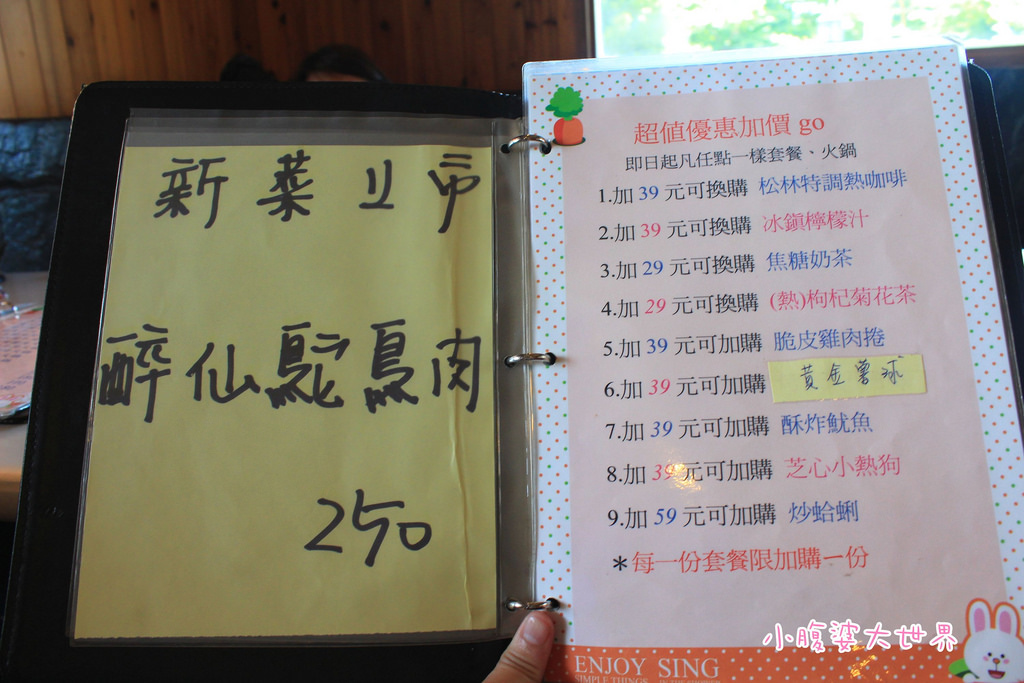 新菜上市
醉仙鴕鳥肉
250
超值優惠加價 go
即日起凡任點一樣套餐、火鍋
1.加 39 元可換購 松林特調熱咖啡
2.加 39 元可換購 冰鎮檸檬汁
3.加 29 元可換購 焦糖奶茶
4.加 29 元可換購 (熱)枸杞菊花茶
5.加 39 元可加購 脆皮雞肉捲
6.加 39 元可加購 黃金薯球
7.加 39 元可加購 酥炸魷魚
8.加 39 元可加購 芝心小熱狗
9.加 59 元可加購 炒蛤蜊
*每一份套餐限加購一份
小腹婆大世界
ENJOY SING
SIMPLE THINGS